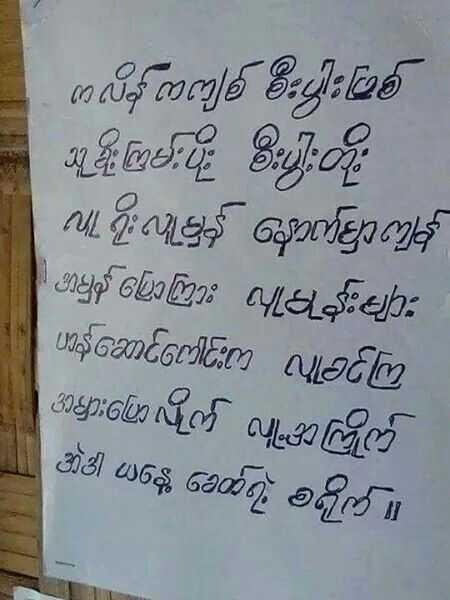 ကလိန်ကကျစ် စီးပွါးဖြစ်
သူခိုးကြမ်းပိုး စီးပွါးတိုး
လူရိုးလူမွန် နောက်မှာကျန်
အမှန်ပြောကြား လူမုန်းများ
ဟန်ဆောင်ကောင်းက လူခင်ကြ
အမှားပြောလိုက် လူ့အကြိုက်
အဲဒါ ယနေ့ ခေတ်ရဲ့ စရိုက်။